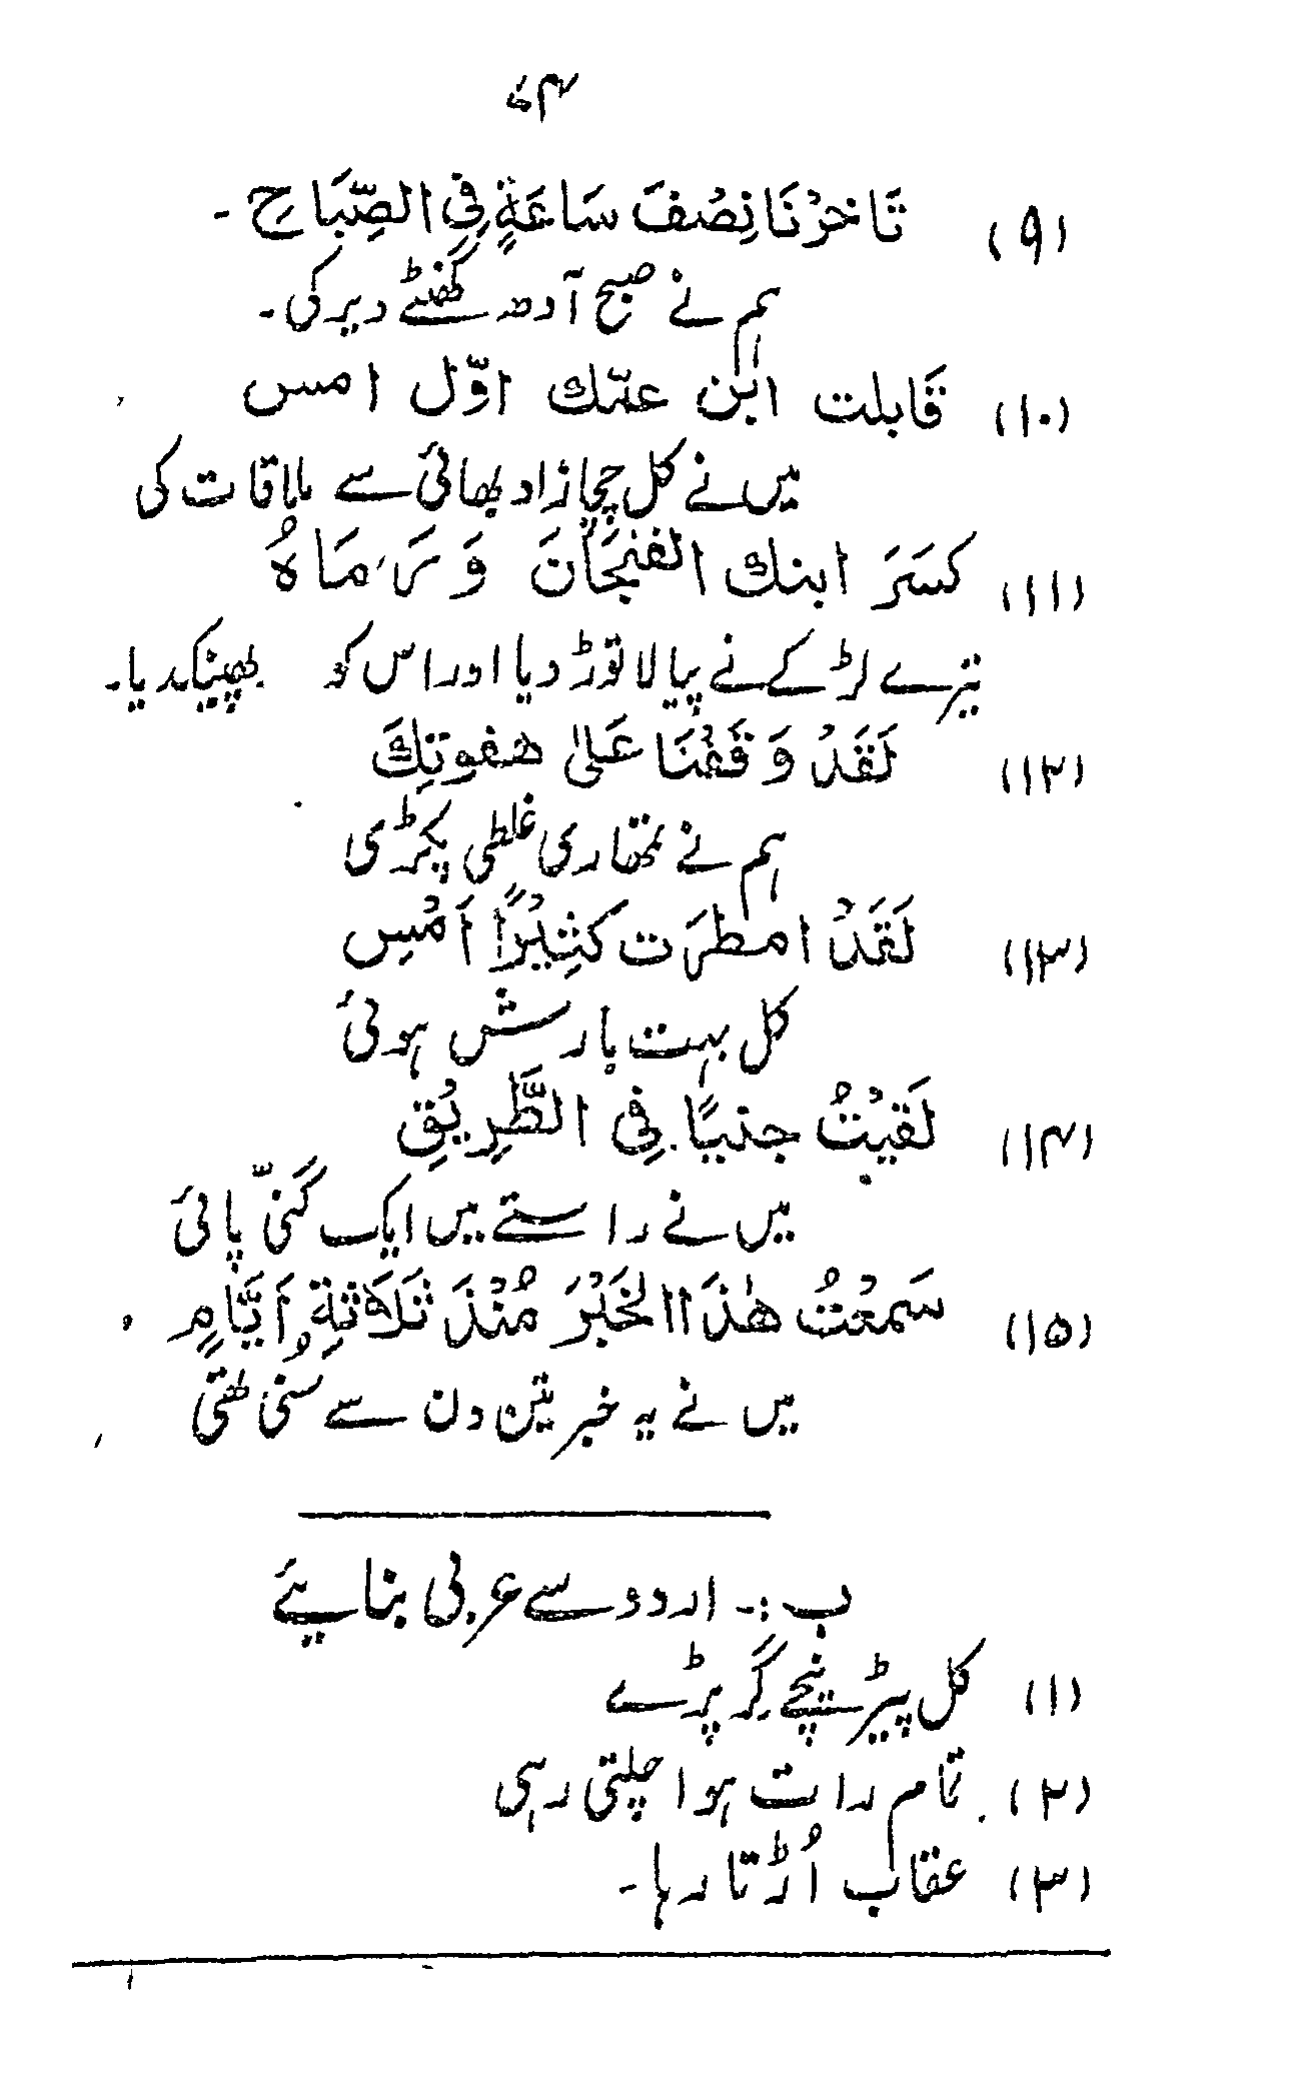 ۷۴
(۹) تَاخرْنَا نِصْفَ سَاعَةٍ فِی الصِّبَاحِ ۔
ہم نے صبح آدھ گھنٹے دیر کی ۔
(۱۰) قَابلت ابن عمّك اوّل امس
میں نے کل چچا زاد بھائی سے ملاقات کی
(۱۱) کسَرَ ابنك الفنجَانَ وَرَمَاہُ
تیرے لڑکے نے پیالا توڑ دیا اور اس کو پھینکدیا۔
(۱۲) لَقَدْ وَقَفْنَا عَلیٰ هفوتِكَ
ہم نے تمھاری غلطی پکڑی
(۱۳) لَقَدْ امطرَت کثِیْرًا اَمْسِ
کل بہت بارش ہوئی
(۱۴) لَقیْتُ جنیًا فِی الطَّرِیْقِ
میں نے راستے میں ایک گنّی پائی
(۱۵) سَمعْتُ هٰذَا الخَبْرَ مُنْذَ ثَلَاثَةِ اَیَّامٍ
میں نے یہ خبر تین دن سے سُنی تھی
ب :۔ اردو سے عربی بنایئے
(۱) کل پیڑ نیچے گِر پڑے
(۲) تمام رات ہوا چلتی رہی
(۳) عقاب اُڑتا رہا ۔